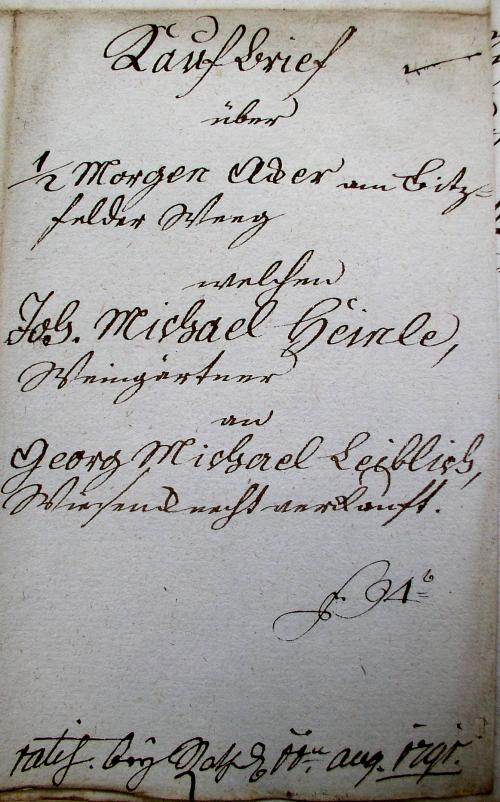 Kaufbrief
über
1/2 Morgen Acker am Bitz-
felder Weeg
welchen
Joh. Michael Heinle,
Weingärtner
an
Georg Michael Leiblich,
Wiesenknecht verkauft.
ratif. bey Rath d. 11n aug. 1791.